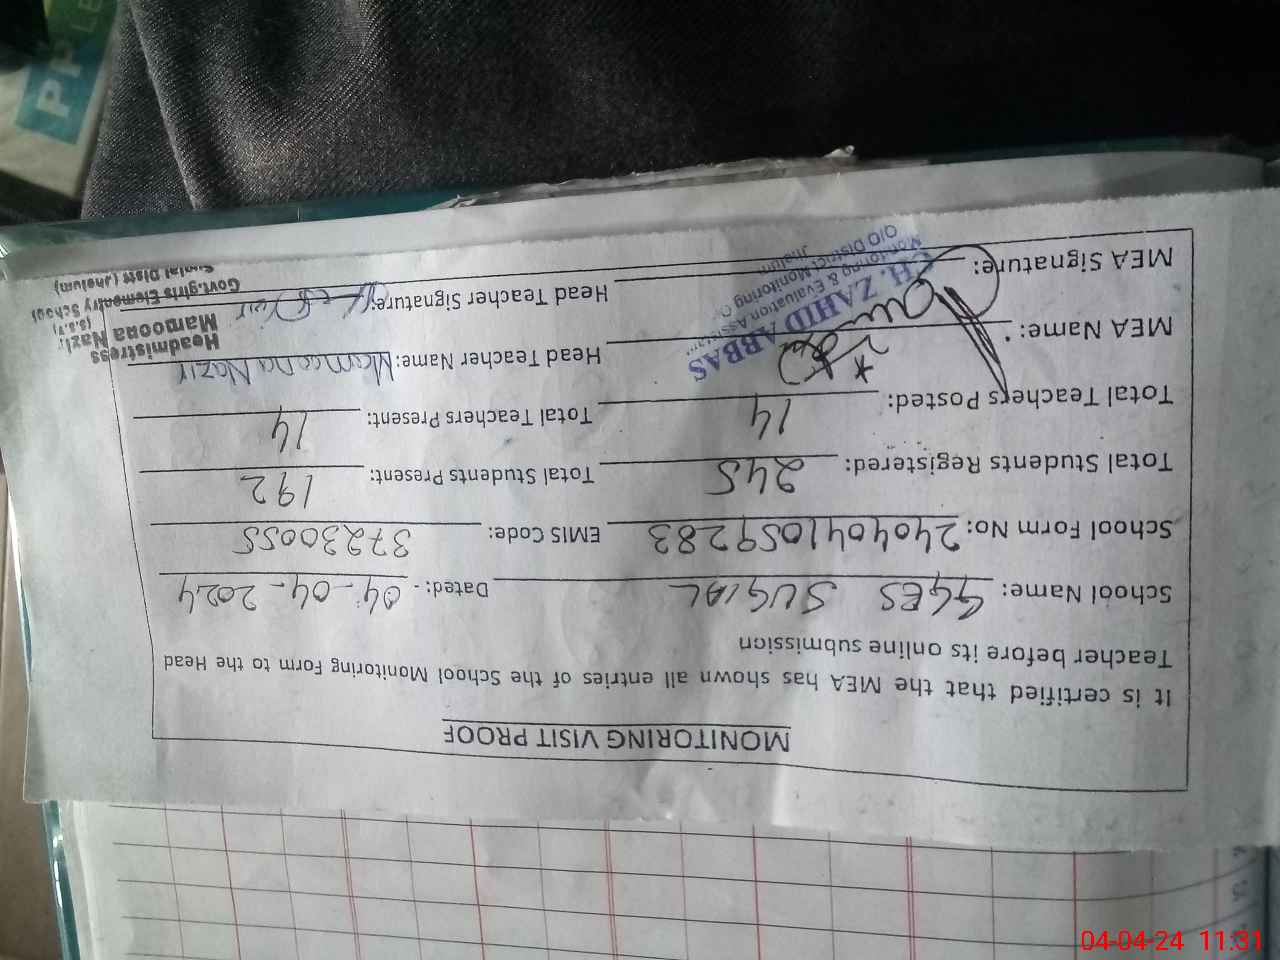 MONITORING VISIT PROOF
It is certified that the MEA has shown all entries of the School Monitoring Form to the Head
Teacher before its online submission
School Name: GGES SUGIAL Dated: - 04-04-2024
School Form No: 2404041059283 EMIS Code: 37230055
Total Students Registered: 245 Total Students Present: 192
Total Teachers Posted: 14 Total Teachers Present: 14
MEA Name: Head Teacher Name: Mamoona Nazir
MEA Signature: Head Teacher Signature:
CH. ZAHID ABBAS
Monitoring & Evaluation Assistant
O/O District Monitoring
Jhelum
Headmistress
Mamoona Nazir
(S.S.T)
Govt.girls Elementry School
Sugial Distt (Jhelum)
04-04-24 11:31